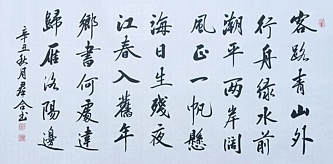 客路青山外
行舟绿水前
潮平两岸阔
风正一帆悬
海日生残夜
江春入旧年
乡书何处达
归雁洛阳边
辛丑秋月君合书